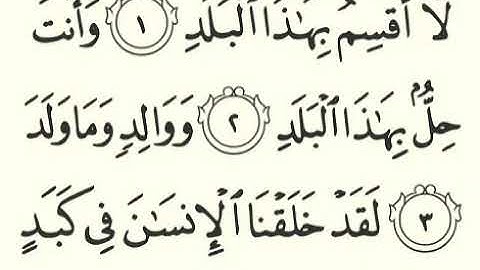 لَا أُقْسِمُ بِهَٰذَا ٱلْبَلَدِ ١ وَأَنتَ
حِلٌّۢ بِهَٰذَا ٱلْبَلَدِ ٢ وَوَالِدٍ وَمَا وَلَدَ
٣ لَقَدْ خَلَقْنَا ٱلْإِنسَٰنَ فِي كَبَدٍ